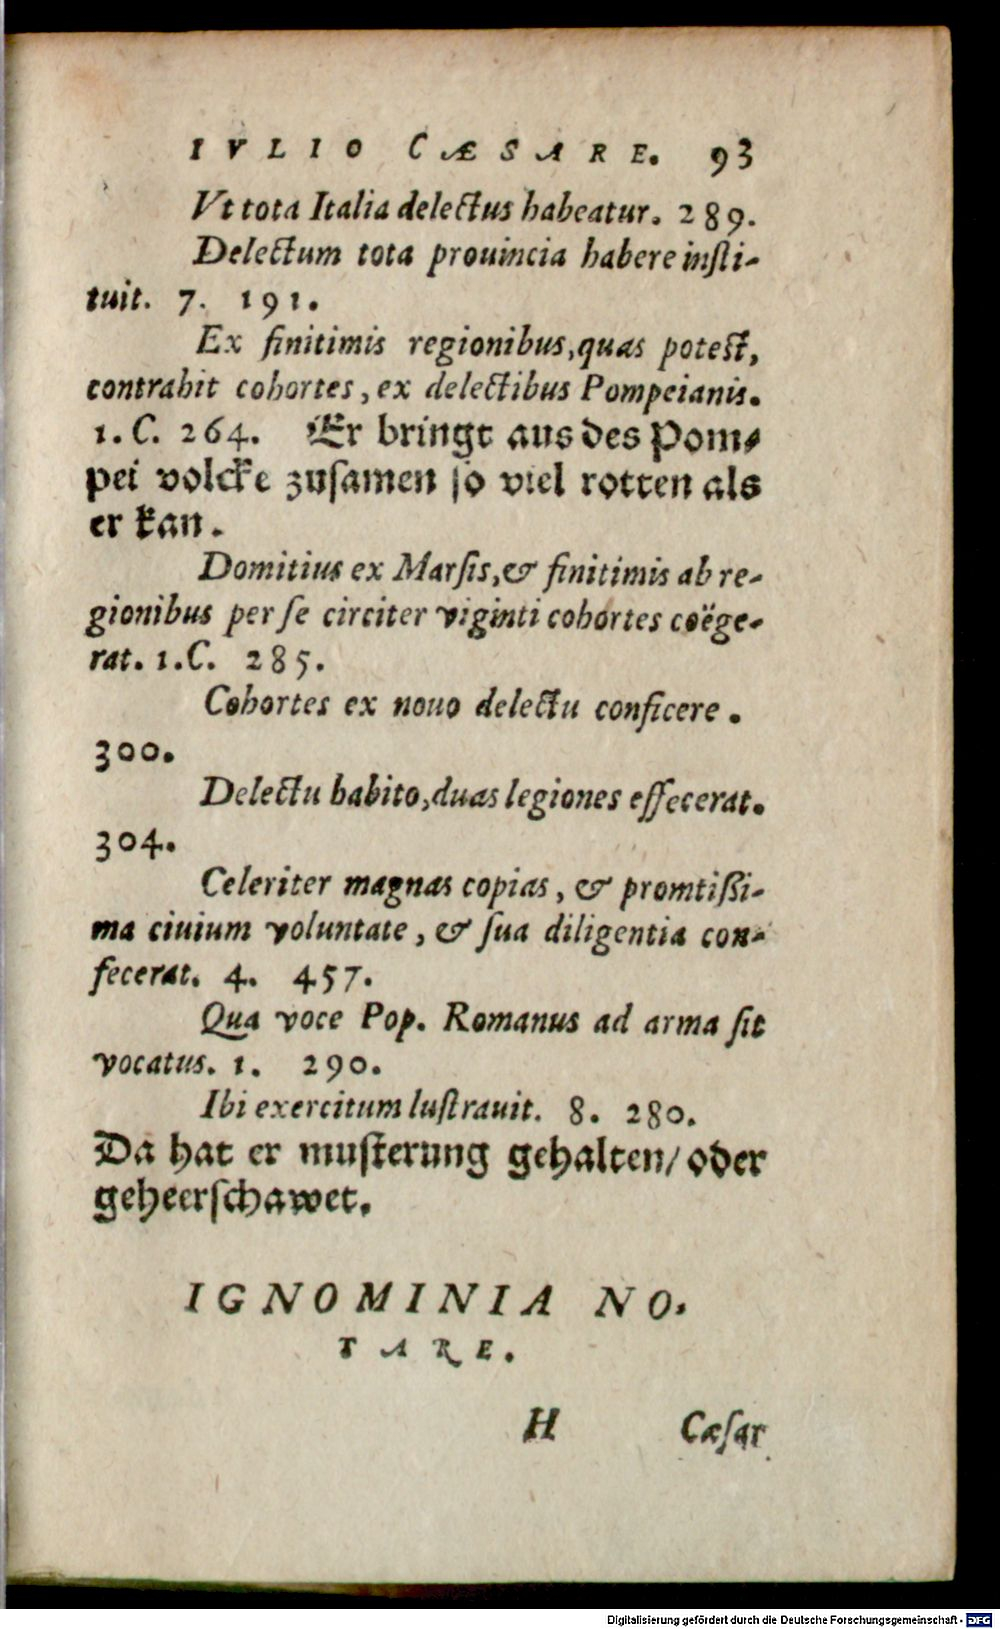 IVLIO CÆSARE. 93
Vt tota Italia delectus habeatur. 289.
Delectum tota prouincia habere insti-
tuit. 7. 191.
Ex finitimis regionibus, quas potest,
contrahit cohortes, ex delectibus Pompeianis.
1. C. 264. Er bringt aus des Pom-
pei volcke zuſamen ſo viel rotten als
er kan.
Domitius ex Marſis, & finitimis ab re-
gionibus per ſe circiter viginti cohortes coëge-
rat. 1. C. 285.
Cohortes ex nouo delectu conficere.
300.
Delectu habito, duas legiones effecerat.
304.
Celeriter magnas copias, & promtißi-
ma ciuium voluntate, & ſua diligentia con-
fecerat. 4. 457.
Qua voce Pop. Romanus ad arma ſit
vocatus. 1. 290.
Ibi exercitum luſtrauit. 8. 280.
Da hat er muſterung gehalten/ oder
geheerſchawet.
IGNOMINIA NO-
TARE.
H Cæſar
Digitalisierung gefördert durch die Deutsche Forschungsgemeinschaft - DFG